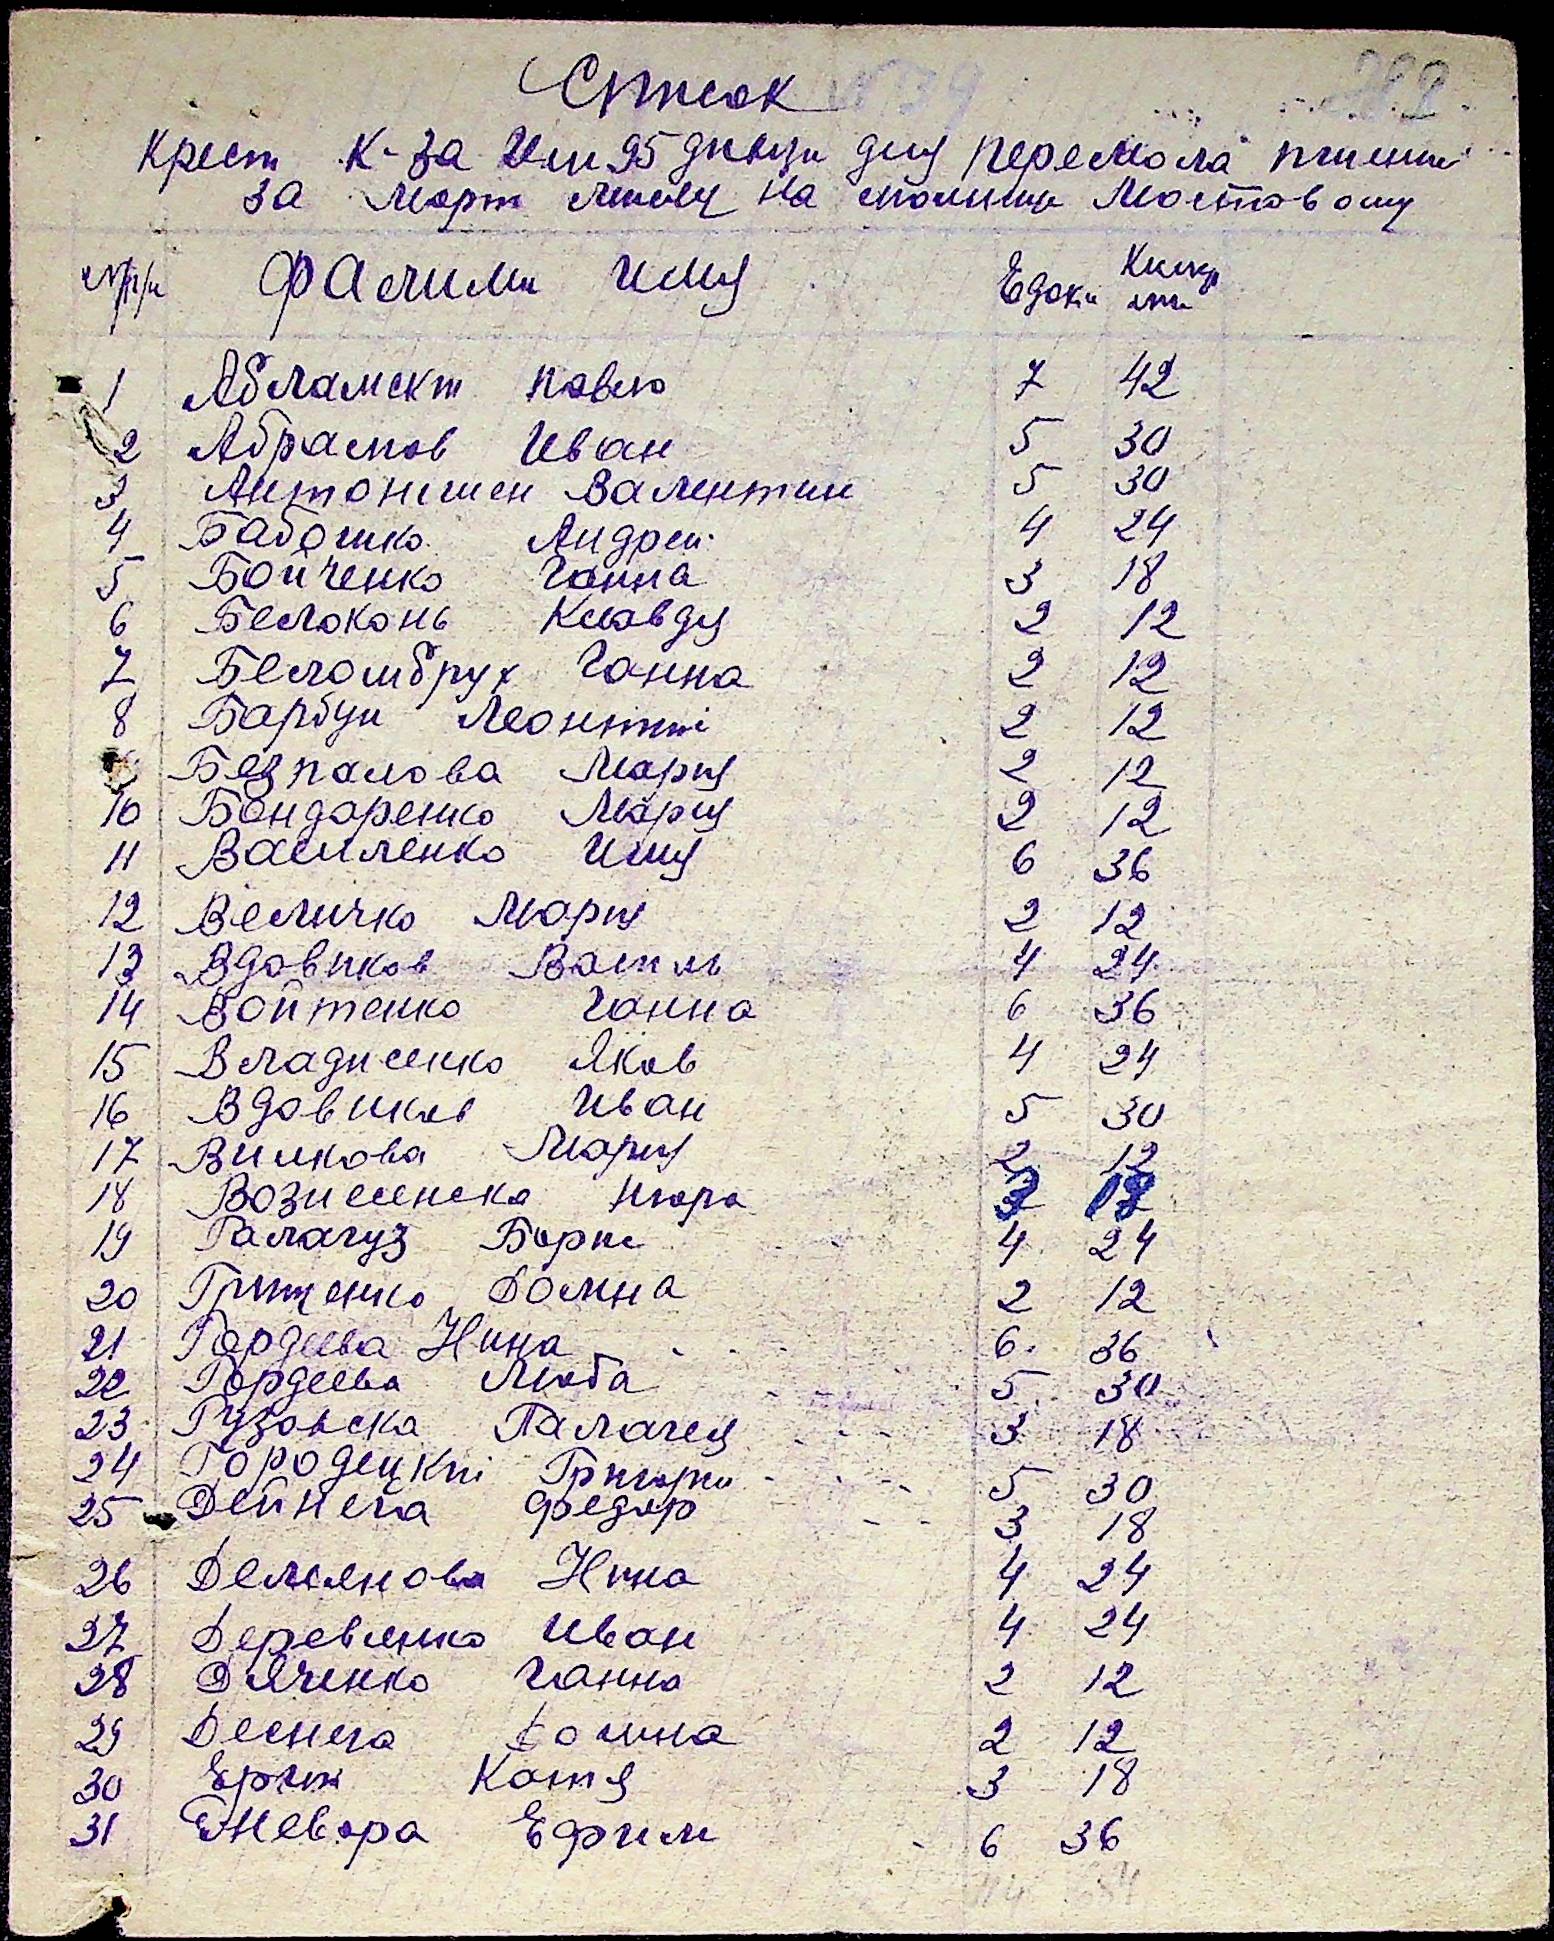 Список №39
282
Крест К-за Им 95 дивизи для перемола пшеници
за Март месец на млинци Мостовому
№п/п Фамили Имя Едоки Килогр
1 Абламскт Павло 7 42
2 Абрамов Иван 5 30
3 Антонишен Валентин 5 30
4 Бабошко Андреи 4 24
5 Бойченко Ганна 3 18
6 Белоконь Клавдя 2 12
7 Беломбрух Ганна 2 12
8 Барбун Леонтиі 2 12
Безпалова Мария 2 12
10 Бондаренко Мария 2 12
11 Василенко Имя 6 36
12 Величко Мария 2 12
13 Вдовиков Василь 4 24
14 Войтенко Ганна 6 36
15 Владисенко Яков 4 24
16 Вдовиков Иван 5 30
17 Вилкова Мария 2 12
18 Вознесенска Нюра 3 18
19 Галагуз Борис 4 24
20 Грищенко Домна 2 12
21 Гордеева Нина 6 36
22 Гордеева Люба 5 30
23 Гузовска Палагея 3 18
24 Городецкиі Григори 5 30
25 Дейнега Федор 3 18
26 Демянова Нина 4 24
27 Деревянко Иван 4 24
28 Дяченко Ганна 2 12
29 Деснега Домна 2 12
30 Катя 3 18
31 Жевора Ефим 6 36